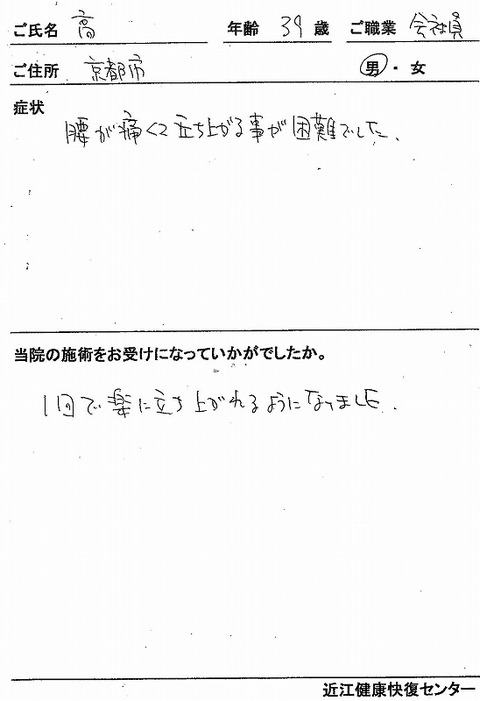 ご氏名 高 年齢 39 歳 ご職業 会社員
ご住所 京都市 男・女
症状
腰が痛くて立ち上がる事が困難でした.
当院の施術をお受けになっていかがでしたか。
1回で楽に立ち上がれるようになりました.
近江健康快復センター